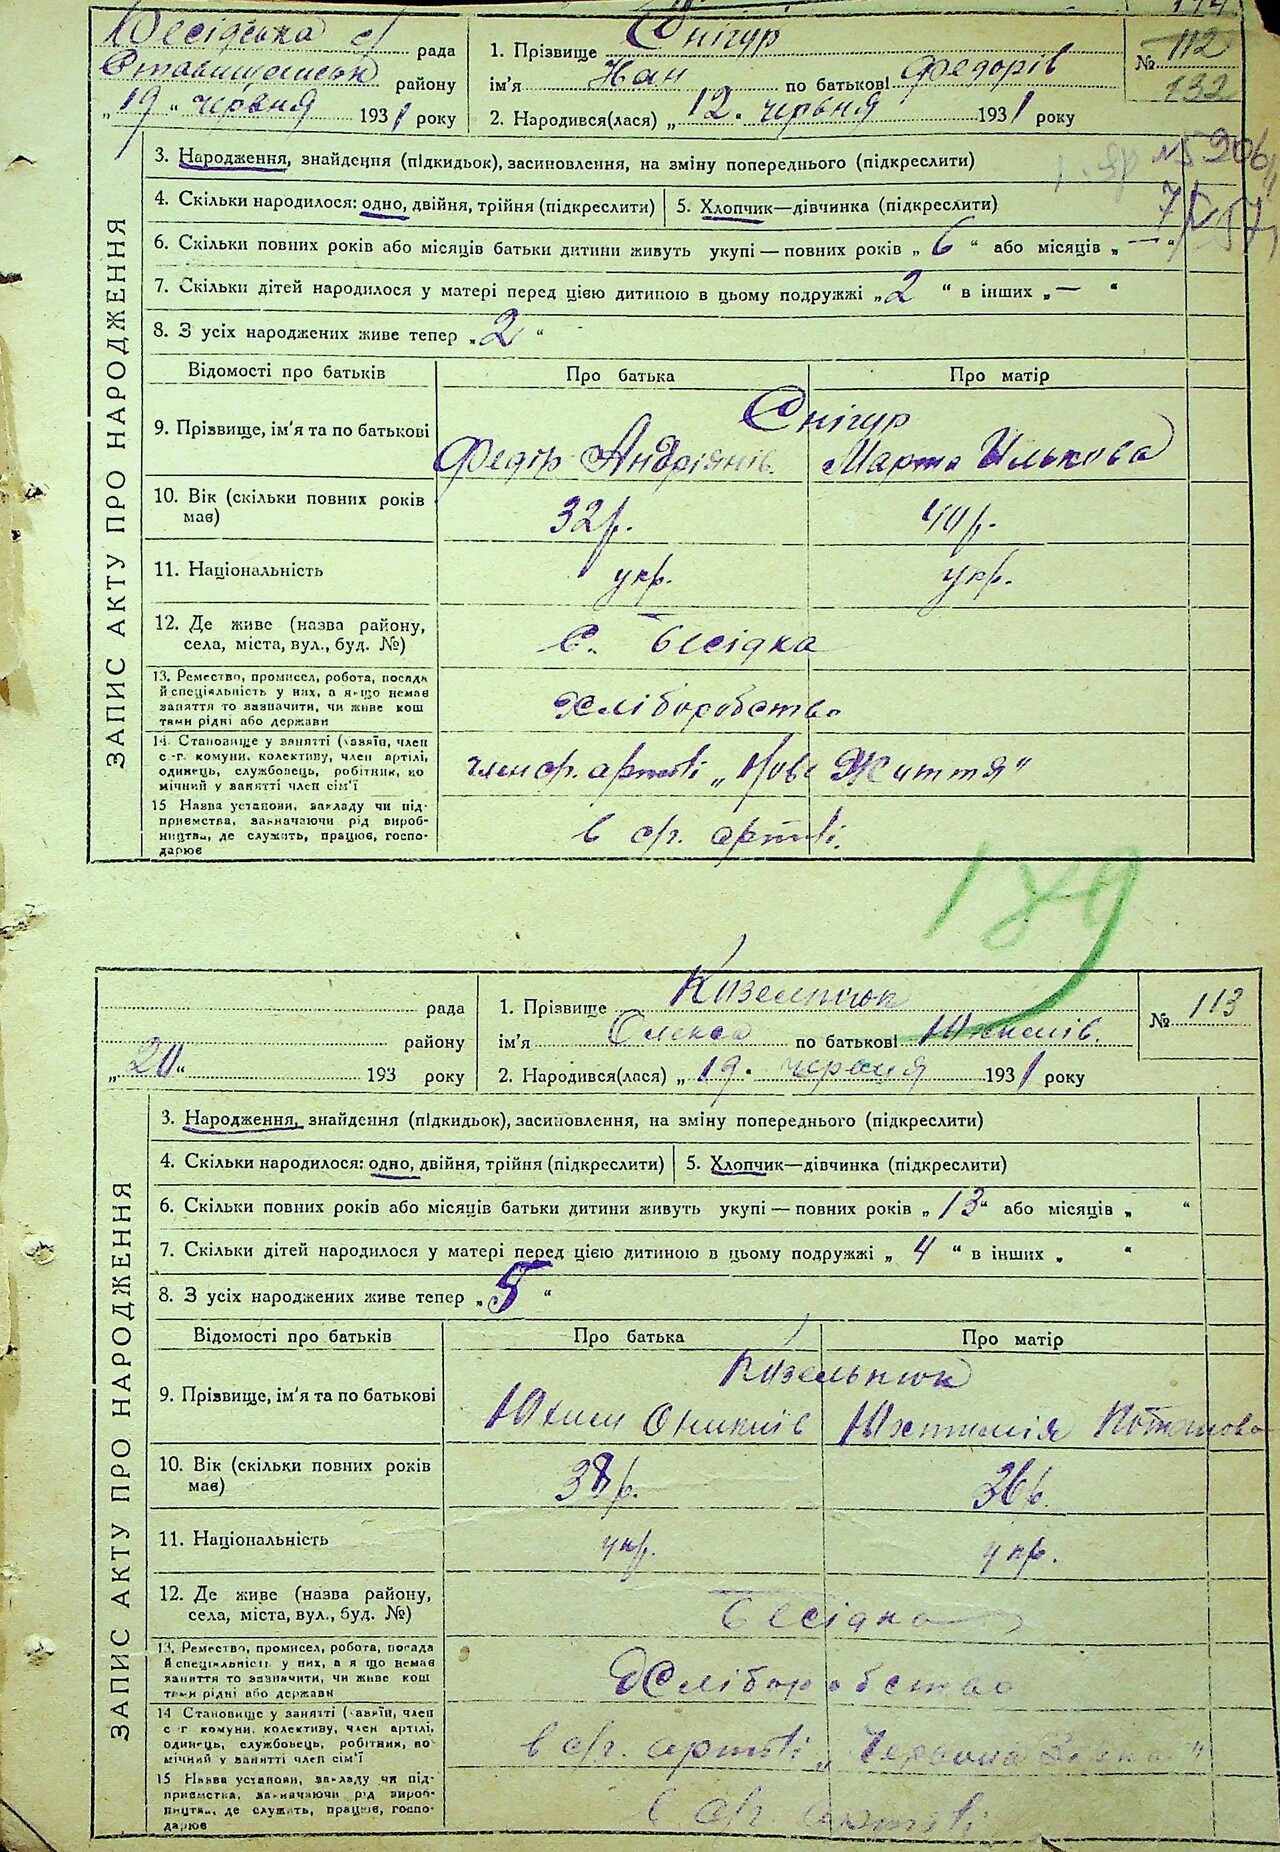 Бесідська с/ рада
Ставищанськ району
„19“ червня 1931 року
1. Прізвище Снігур
ім'я Иан по батькові Федорів
2. Народився(лася) „12. червня 1931 року
№ 112
132
3. Народження, знайдення (підкидьок), засиновлення, на зміну попереднього (підкреслити)
4. Скільки народилося: одно, двійня, трійня (підкреслити) 5. Хлопчик—дівчинка (підкреслити)
6. Скільки повних років або місяців батьки дитини живуть укупі — повних років „6“ або місяців „—“
7. Скільки дітей народилося у матері перед цією дитиною в цьому подружжі „2“ в інших „—“
8. З усіх народжених живе тепер „2“
ЗАПИС АКТУ ПРО НАРОДЖЕННЯ
Відомості про батьків Про батька Про матір
9. Прізвище, ім'я та по батькові Снігур
Федір Андріянів. Марта Илькова
10. Вік (скільки повних років має) 32р. 40р.
11. Національність укр. укр.
12. Де живе (назва району,
села, міста, вул., буд. №) с. Бесідка
13. Ремество, промисел, робота, посада
й спеціяльність у них, а якщо немає
заняття то зазначити, чи живе кош
тами рідні або держави
Хліборобство
14. Становище у занятті (хазяїн, член
с.-г. комуни, колективу, член артілі,
одинець, службовець, робітник, по
мічний у занятті член сім'ї
член с/г. артілі „Нове Життя“
15 Назва установи, закладу чи під-
приємства, зазначаючи рід вироб-
ництва, де служить, працює, госпо-
дарює
в с/г. артілі.
189
рада
району
„20“ 193 року
1. Прізвище Кизельнюк
ім'я Олекса по батькові Юхимів.
2. Народився(лася) „19. червня 1931 року
№ 113
3. Народження, знайдення (підкидьок), засиновлення, на зміну попереднього (підкреслити)
4. Скільки народилося: одно, двійня, трійня (підкреслити) 5. Хлопчик—дівчинка (підкреслити)
6. Скільки повних років або місяців батьки дитини живуть укупі — повних років „13“ або місяців „ “
7. Скільки дітей народилося у матері перед цією дитиною в цьому подружжі „4“ в інших „ “
8. З усіх народжених живе тепер „5“
ЗАПИС АКТУ ПРО НАРОДЖЕННЯ
Відомості про батьків Про батька Про матір
9. Прізвище, ім'я та по батькові Кизельнюк
Юхим Юхтимія Потапова
10. Вік (скільки повних років має) 38р. 36р.
11. Національність укр. укр.
12. Де живе (назва району,
села, міста, вул., буд. №) Бесідка
13. Ремество, промисел, робота, посада
й спеціяльність у них, а якщо немає
заняття то зазначити, чи живе кош
тами рідні або держави
Хліборобство
14 Становище у занятті (хазяїн, член
с-г комуни, колективу, член артілі,
одинець, службовець, робітник, по
мічний у занятті член сім'ї
в с/г. артілі „Червона
15 Назва установи, закладу чи під-
приємства, зазначаючи рід вироб-
ництва, де служить, працює, госпо-
дарює
в с/г. артілі